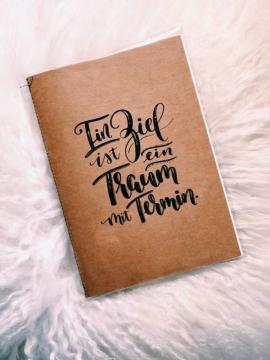 Ein Ziel
ist ein
Traum
mit Termin.